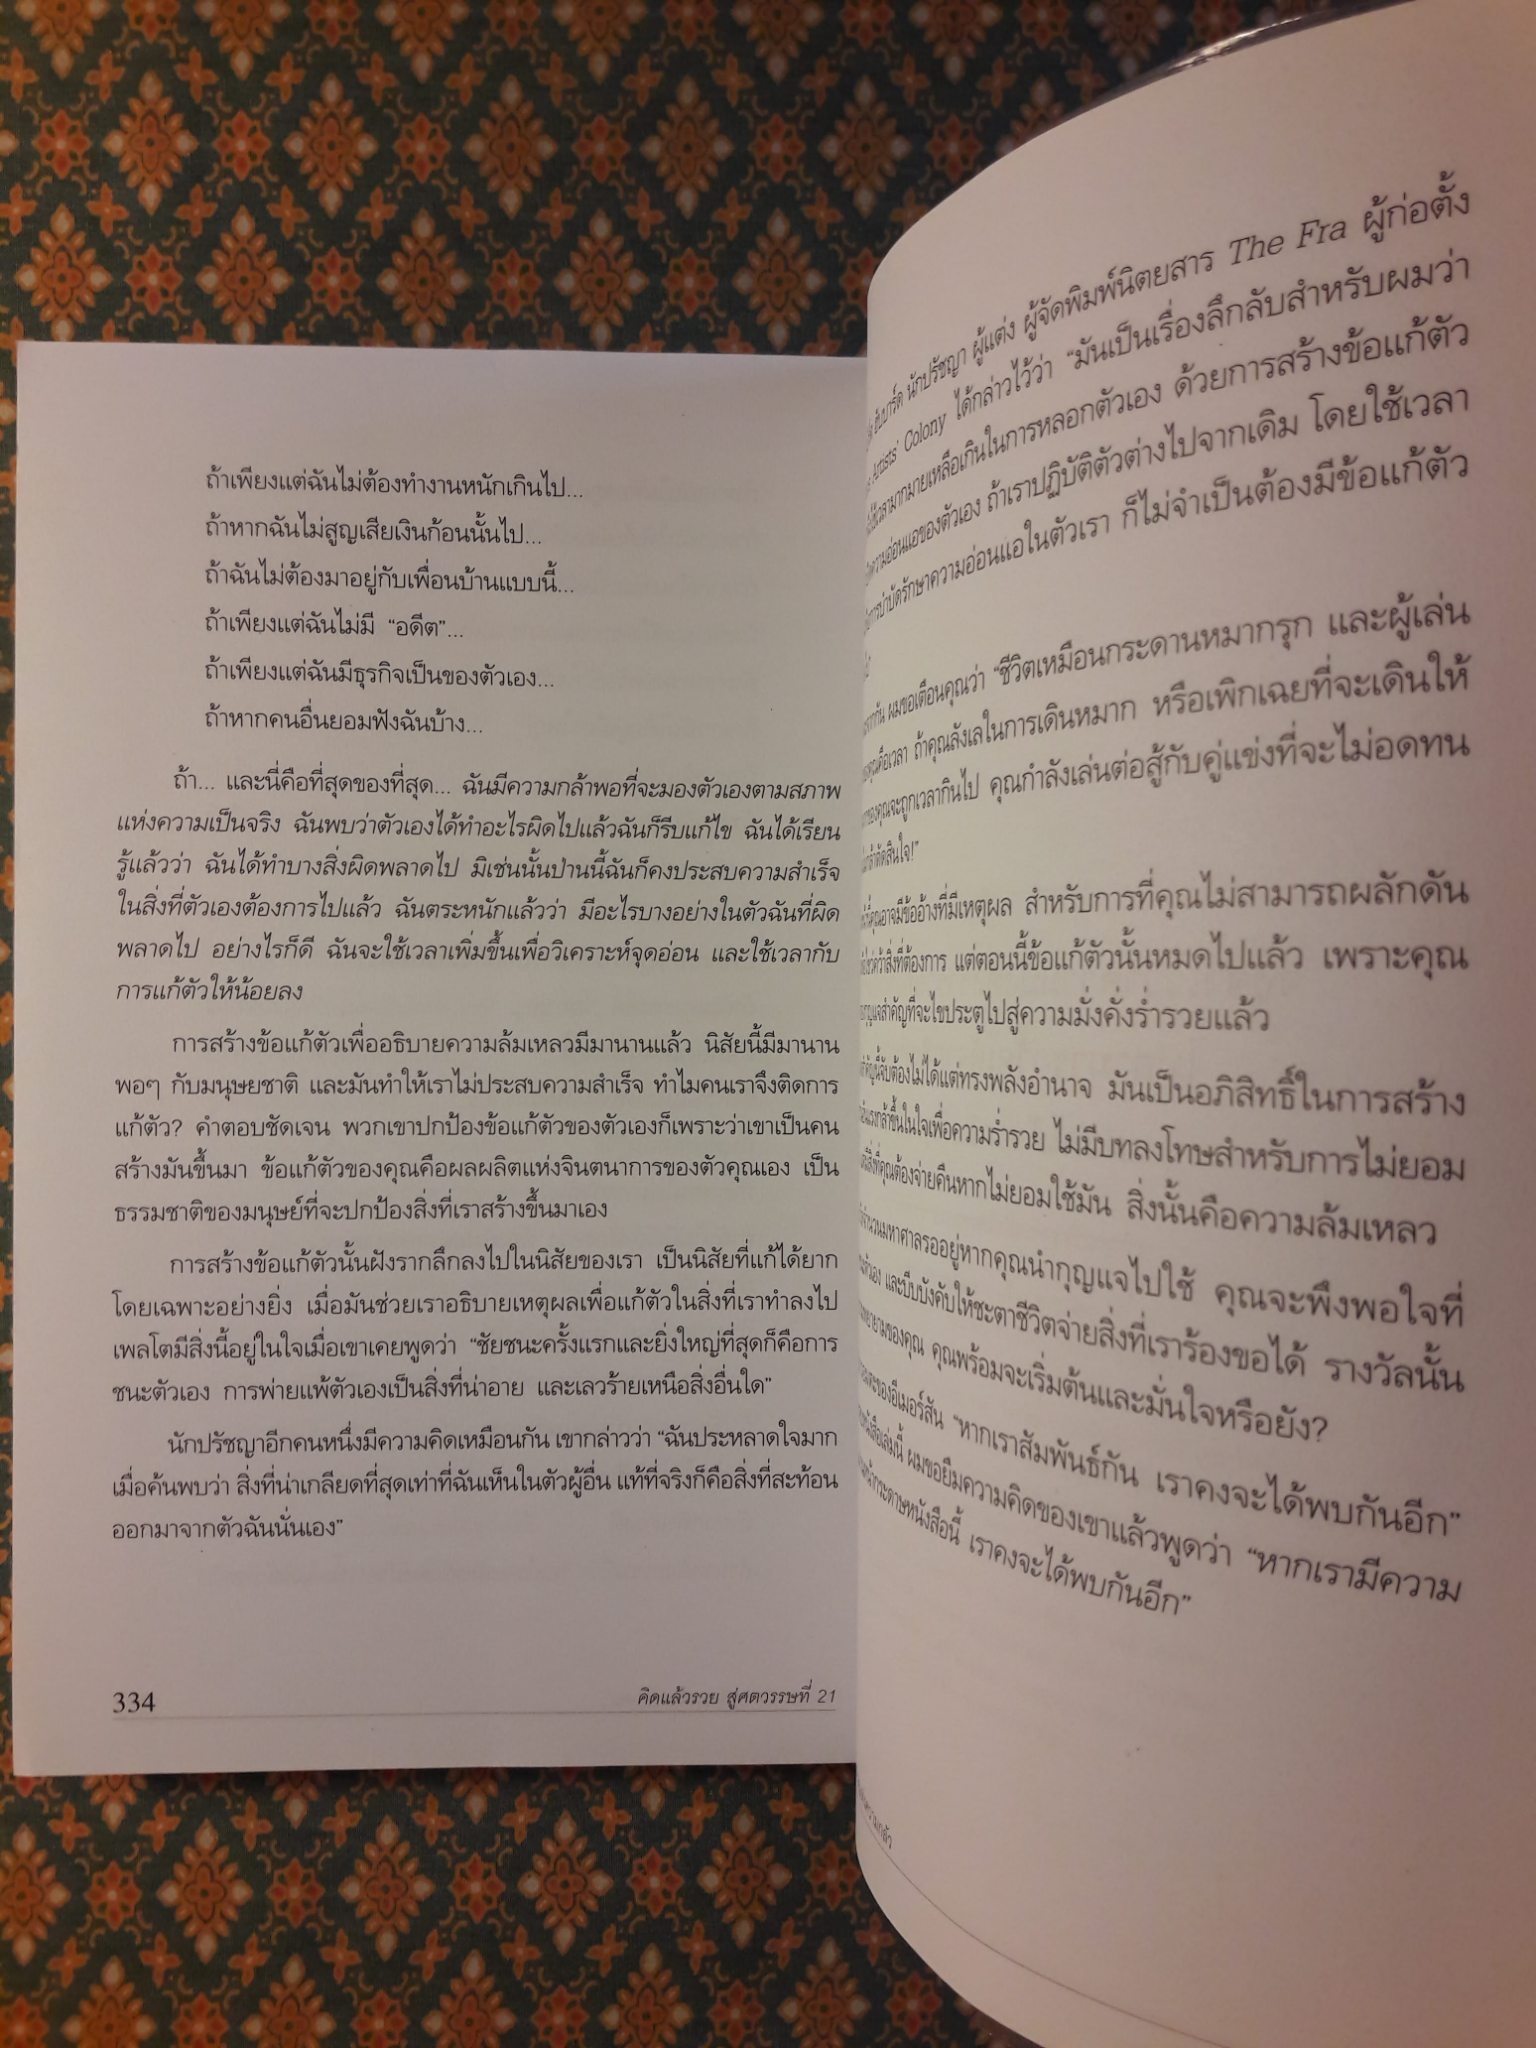 ถ้าเพียงแต่ฉันไม่ต้องทำงานหนักเกินไป...
ถ้าหากฉันไม่สูญเสียเงินก้อนนั้นไป...
ถ้าฉันไม่ต้องมาอยู่กับเพื่อนบ้านแบบนี้...
ถ้าเพียงแต่ฉันไม่มี “อดีต”...
ถ้าเพียงแต่ฉันมีธุรกิจเป็นของตัวเอง...
ถ้าหากคนอื่นยอมฟังฉันบ้าง...
ถ้า... และนี่คือที่สุดของที่สุด... ฉันมีความกล้าพอที่จะมองตัวเองตามสภาพ
แห่งความเป็นจริง ฉันพบว่าตัวเองได้ทำอะไรผิดไปแล้วฉันก็รีบแก้ไข ฉันได้เรียน
รู้แล้วว่า ฉันได้ทำบางสิ่งผิดพลาดไป มิเช่นนั้นป่านนี้ฉันก็คงประสบความสำเร็จ
ในสิ่งที่ตัวเองต้องการไปแล้ว ฉันตระหนักแล้วว่า มีอะไรบางอย่างในตัวฉันที่ผิด
พลาดไป อย่างไรก็ดี ฉันจะใช้เวลาเพิ่มขึ้นเพื่อวิเคราะห์จุดอ่อน และใช้เวลากับ
การแก้ตัวให้น้อยลง
การสร้างข้อแก้ตัวเพื่ออธิบายความล้มเหลวมีมานานแล้ว นิสัยนี้มีมานาน
พอๆ กับมนุษยชาติ และมันทำให้เราไม่ประสบความสำเร็จ ทำไมคนเราจึงติดการ
แก้ตัว? คำตอบชัดเจน พวกเขาปกป้องข้อแก้ตัวของตัวเองก็เพราะว่าเขาเป็นคน
สร้างมันขึ้นมา ข้อแก้ตัวของคุณคือผลผลิตแห่งจินตนาการของตัวคุณเอง เป็น
ธรรมชาติของมนุษย์ที่จะปกป้องสิ่งที่เราสร้างขึ้นมาเอง
การสร้างข้อแก้ตัวนั้นฝังรากลึกลงไปในนิสัยของเรา เป็นนิสัยที่แก้ได้ยาก
โดยเฉพาะอย่างยิ่ง เมื่อมันช่วยเราอธิบายเหตุผลเพื่อแก้ตัวในสิ่งที่เราทำลงไป
เพลโตมีสิ่งนี้อยู่ในใจเมื่อเขาเคยพูดว่า “ชัยชนะครั้งแรกและยิ่งใหญ่ที่สุดก็คือการ
ชนะตัวเอง การพ่ายแพ้ตัวเองเป็นสิ่งที่น่าอาย และเลวร้ายเหนือสิ่งอื่นใด”
นักปรัชญาอีกคนหนึ่งมีความคิดเหมือนกัน เขากล่าวว่า “ฉันประหลาดใจมาก
เมื่อค้นพบว่า สิ่งที่น่าเกลียดที่สุดเท่าที่ฉันเห็นในตัวผู้อื่น แท้ที่จริงก็คือสิ่งที่สะท้อน
ออกมาจากตัวฉันนั่นเอง”
334
คิดแล้วรวย สู่ศตวรรษที่ 21
ฮับบาร์ด นักปรัชญา ผู้แต่ง ผู้จัดพิมพ์นิตยสาร The Fra ผู้ก่อตั้ง
Artists' Colony ได้กล่าวไว้ว่า “มันเป็นเรื่องลึกลับสำหรับผมว่า
เวลามากมายเหลือเกินในการหลอกตัวเอง ด้วยการสร้างข้อแก้ตัว
ความอ่อนแอของตัวเอง ถ้าเราปฏิบัติตัวต่างไปจากเดิม โดยใช้เวลา
การบำบัดรักษาความอ่อนแอในตัวเรา ก็ไม่จำเป็นต้องมีข้อแก้ตัว
จากกัน ผมขอเตือนคุณว่า “ชีวิตเหมือนกระดานหมากรุก และผู้เล่น
คือเวลา ถ้าคุณลังเลในการเดินหมาก หรือเพิกเฉยที่จะเดินให้
ของคุณจะถูกเวลากินไป คุณกำลังเล่นต่อสู้กับคู่แข่งที่จะไม่อดทน
ตัดสินใจ!”
คุณอาจมีข้ออ้างที่มีเหตุผล สำหรับการที่คุณไม่สามารถผลักดัน
สิ่งที่ต้องการ แต่ตอนนี้ข้อแก้ตัวนั้นหมดไปแล้ว เพราะคุณ
กุญแจสำคัญที่จะไขประตูไปสู่ความมั่งคั่งร่ำรวยแล้ว
นี้จับต้องไม่ได้แต่ทรงพลังอำนาจ มันเป็นอภิสิทธิ์ในการสร้าง
แรงกล้าขึ้นในใจเพื่อความร่ำรวย ไม่มีบทลงโทษสำหรับการไม่ยอม
สิ่งที่คุณต้องจ่ายคืนหากไม่ยอมใช้มัน สิ่งนั้นคือความล้มเหลว
จำนวนมหาศาลรออยู่หากคุณนำกุญแจไปใช้ คุณจะพึงพอใจที่
และบีบบังคับให้ชะตาชีวิตจ่ายสิ่งที่เราร้องขอได้ รางวัลนั้น
ของคุณ คุณพร้อมจะเริ่มต้นและมั่นใจหรือยัง?
ของอีเมอร์สัน “หากเราสัมพันธ์กัน เราคงจะได้พบกันอีก”
หนังสือเล่มนี้ ผมขอยืมความคิดของเขาแล้วพูดว่า “หากเรามีความ
หน้ากระดาษหนังสือนี้ เราคงจะได้พบกันอีก”